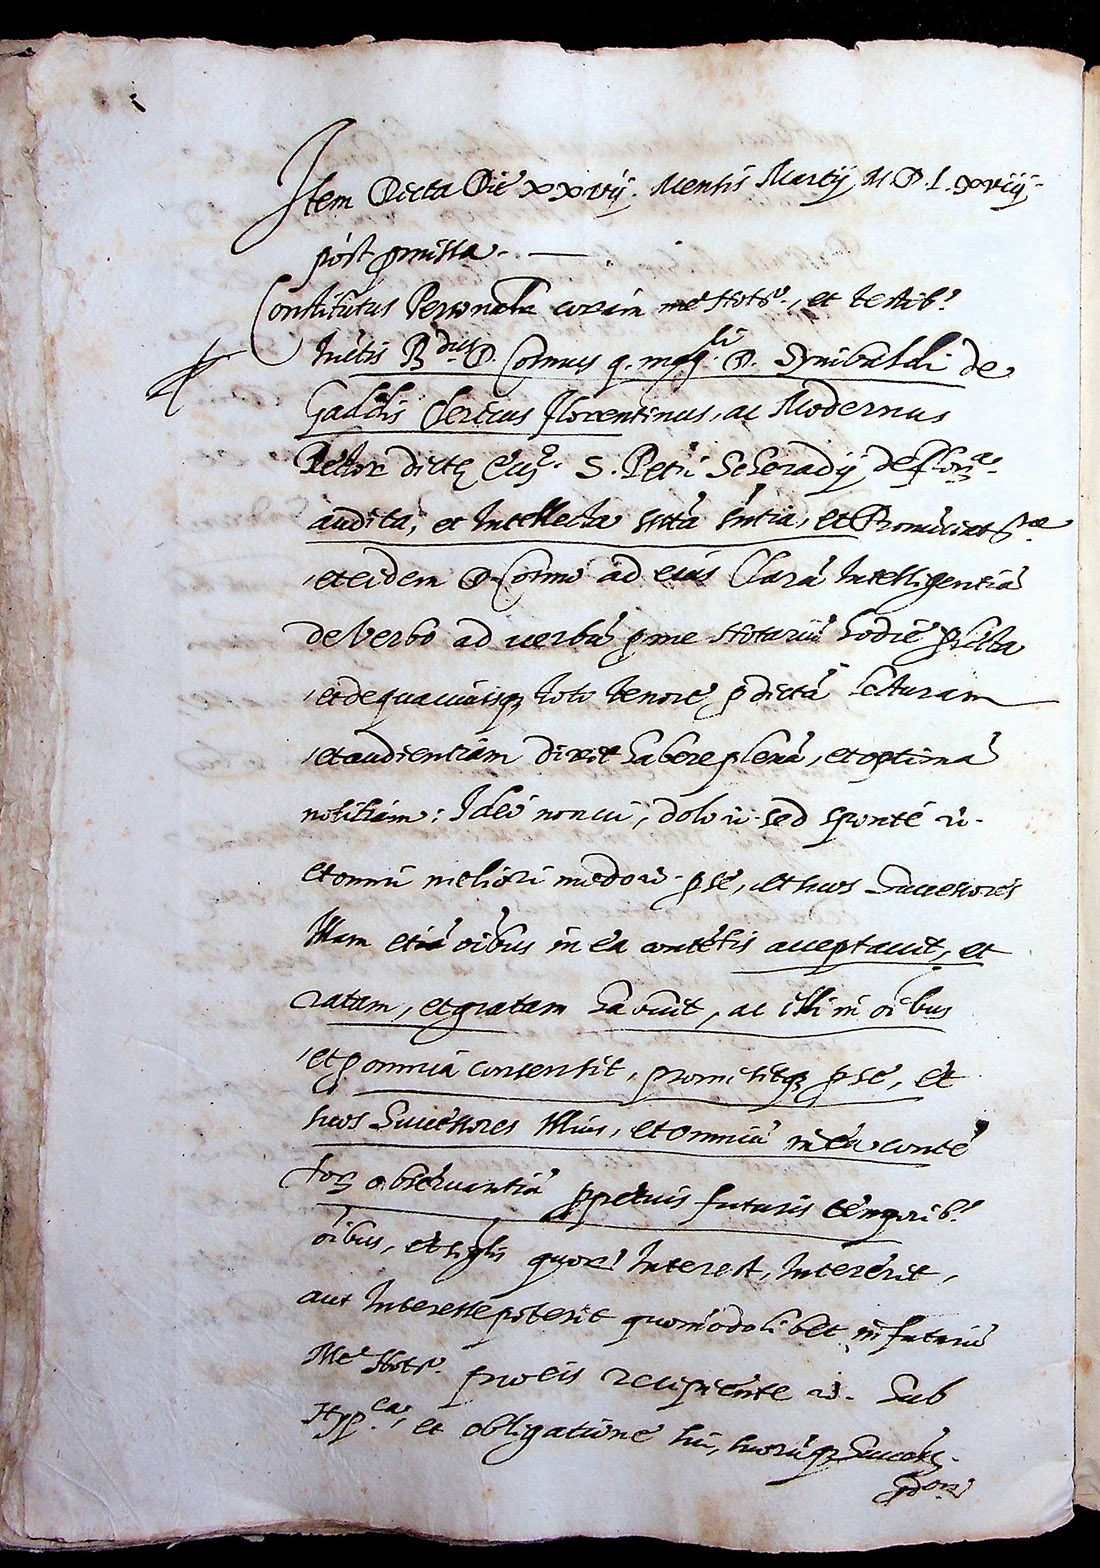 Item Dicta Die xxviij. Mensis Martij M.D.L.xviij.
post pmissa. —
Constitutus Personalr coram me Notro., et testib.
Infratis Rdus D. Cosmus q. mgci D. Synibaldi de
Gaddis Clericus florentinus, ac Modernus
Rector dictę S. Petri de flora.
audita, et Intellecta snia, et
et eidem D. Cosmo ad eius Clara Intelligentia
de Verbo ad uerbu p me Notariu hodie plecta
et de quacuiusq toto tenore p dicta lecturam
et audientiam dixit habere plena, et optima
notitiam: Ideo non ui, dolo u. sed sponte u.
et omni meliori modo u. p se, et suos Successores
Illam etia oibus in ea contetis acceptauit, et
ratam, et gratam habuit, ac illi in oibus
et p omnia consensit, promisitq p se, et
suos Successores Illius, et omniu in ea conte
tor obseruantia ppetuis futuris temporib.
oibus, et siglis quor Interest, Intererit,
aut Interesse poterit quomodolibet in futuru
Me Notro. pro eis recipiente u. Sub
Hypca, et obligatione sui, suorumq Succor
pdor